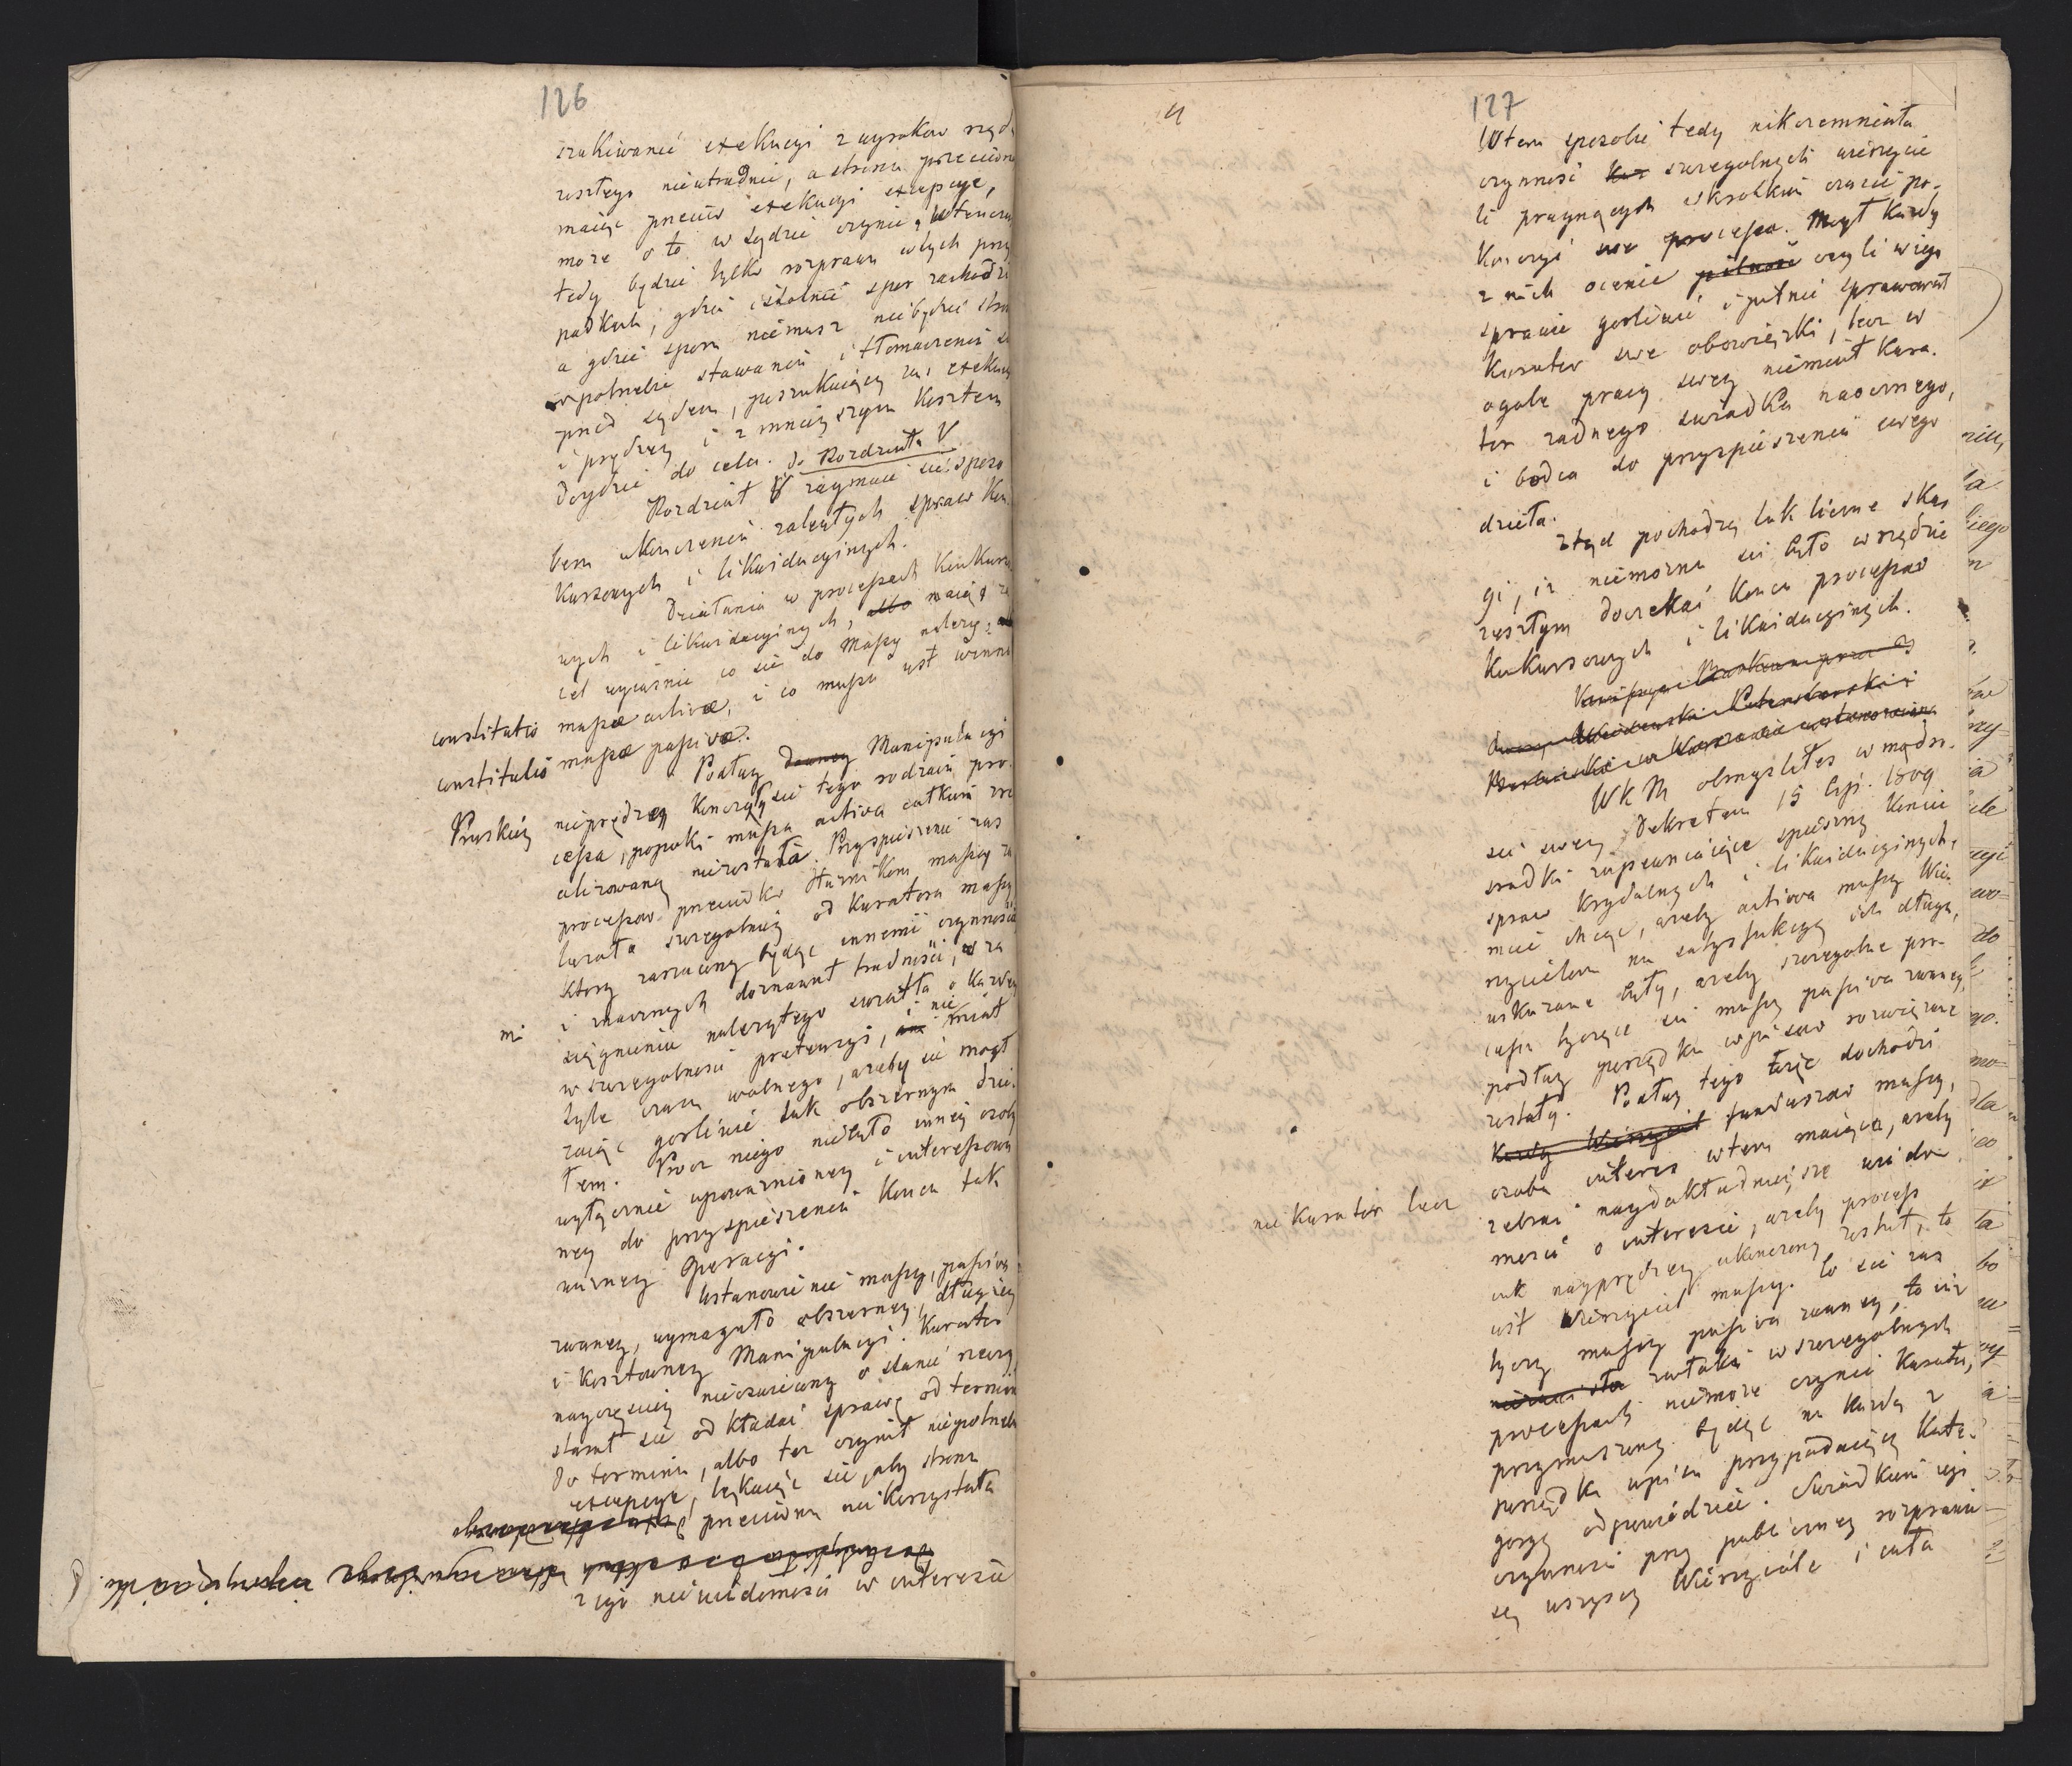 126
szukiwanie exekucyi z wyrokow rządu
zeszłego nieutrudnie, a strona przeciwna
maiąc przeciw exekucyi excepcye,
może o to w sądzie czynić, wtenczas
tedy będzie tylko rozprawa w tych przy
padkach, gdzie istotnie spor zachodzi
a gdzie sporu niemasz nie będzie stron
potrzeba stawania i tłomaczenia się
przed sądem, poszukuiący zaś exekucyi
i prędzey i z mnieyszym kosztem
doydzie do celu. do Rozdziału V
Rozdział V zaymuie się sposo
bem ukończenia zaległych spraw Kon
kursowych i likwidacyinych.
Działania w processach konkurso
wych i likwidacyinych, albo maią za
cel wyiaśnić co się do massy należy,
constitutio massæ activæ, i co massa iest winna
constitutio massæ passivæ.
Podług dawney Manipulacyi
Pruskiey nieprędzey kończyły się tego rodzaiu pro
cessa, popoki massa activa całkiem zre
alizowaną niezostała. Przyspieszenie zas
processow przeciwko dłużnikom massy za
leżało szczegolniey od Kuratora massy
ktory zarzucony będąc innemi czynnościa
mi i znacznych doznawał trudności, w za
siągnieniu należytego swiatła o każdey
w szczegolnosci pretensyi, i nie miał
tyle czasu wolnego, azeby się mogł
zaiąć gorliwie tak obszernym dzie
łem. Procz niego niebyło inney osoby
wyłącznie upoważnioney i interessowa
ney do przyspieszenia końca tak
ważney Operacyi.
Ustanowienie massy, passiva
zwaney, wymagało obszerney, długiey
i kosztowney Manipulacyi. Kurator
nayczęściey nieoswiecony o stanie rzeczy,
starał się odkładać sprawę od terminu
do terminu, albo też czynił niepotrzebne
excepcye, lękaiąc się, aby strona
przeciwna nie korzystała
z iego niewiadomosci w interesie
4
127
W tem sposobie tedy nikczemniała
czynność szczegolnych wierzycie
li pragnących w krotkim czasie po-
kończyć swe processa. Mogł każdy
z nich ocenić pilność czyli w iego
sprawie gorliwie i pilnie sprawował
Kurator swe obowiązki, lecz w
ogole pracy swey niemiał Kura.
tor żadnego swiadka naocznego,
i bodca do przyspieszenia swego
dzieła.
Ztąd pochodzą tak liczne skar
gi, iż niemożna się było w rządzie
zeszłym doczekać końca processow
konkursowych i likwidacyinych.
WKM obmysliłeś w mądro-
sci swey Dekretem 15 Lips. 1809
srodki zapewniaiące spieszny koniec
spraw krydalnych i likwidacyinych,
mieć chcąc, azeby activa massy Wie
rzycielom na satysfakcyą ich długu,
wskazane były, azeby szczegolne pro-
cessa tyczące się massy passiva zwaney,
podług porządku wpisow rozwiązane
zostały. Podług tego teraz dochodzi
Każdy Wierzyciel funduszow massy,
nie Kurator lecz osoba interes w tem maiąca, azeby
zebrać naydokładnieysze wiado
mosci o interesie, azeby process
iak nayprędzey ukończony został, to
iest Wierzyciel massy. Co się zas
tycze massy passiva zwaney, to iuż
zwłoki w szczegolnych
processach niemoże czynić Kurator,
przymuszony będąc na każdą z
porządku wpisu przypadaiącą Kate-
goryą odpowiedzieć. Swiadkami iego
czynnosci przy publiczney rozprawie
są wszyscy Wierzyciele i cała